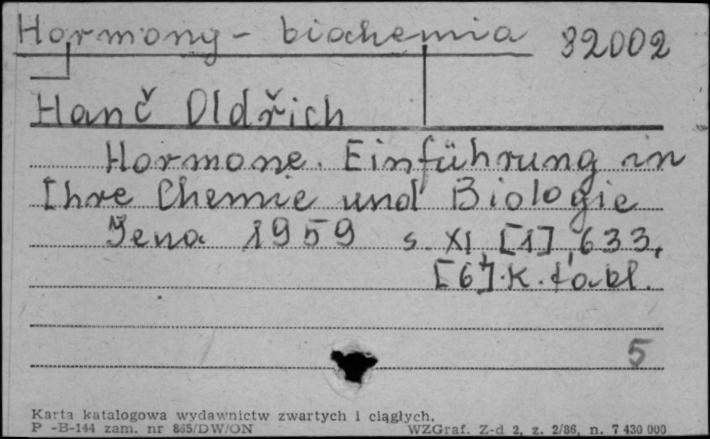 Hormony - biochemia 82002
Hanč Oldřich
Hormone. Einführung in
Ihre Chemie und Biologie
Jena 1959 s. XI, [1], 633,
[6] k. tabl.
5
Karta katalogowa wydawnictw zwartych i ciągłych.
P -B-144 zam. nr 865/DW/ON WZGraf. Z-d 2, z. 2/86, n. 7 430 000